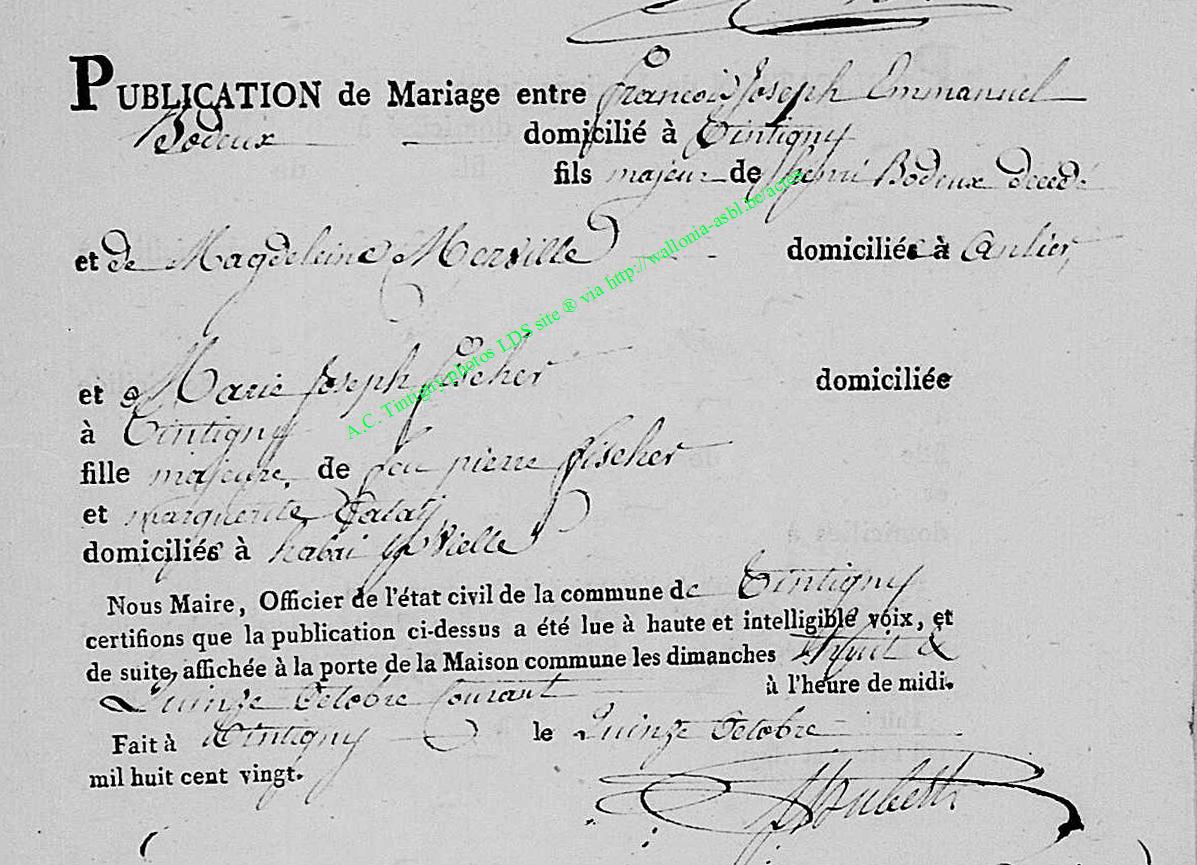 PUBLICATION de Mariage entre François Joseph Emmanuel
Bodeux domicilié à Tintigny
fils majeur de Henri Bodeux décédé
et de Magdeleine Merville domiciliés à Anlier,
et Marie Joseph Fischer domiciliée
à Tintigny
fille majeure, de feu pierre fischer
et marguerite
domiciliés à habai la vielle
Nous Maire, Officier de l'état civil de la commune de Tintigny
certifions que la publication ci-dessus a été lue à haute et intelligible voix, et
de suite, affichée à la porte de la Maison commune les dimanches huit &
Quinze Octobre Courant à l'heure de midi.
Fait à Tintigny le Quinze Octobre
mil huit cent vingt.
A.C. Tintigny photos LDS site ® via http://wallonia-asbl.be/actes